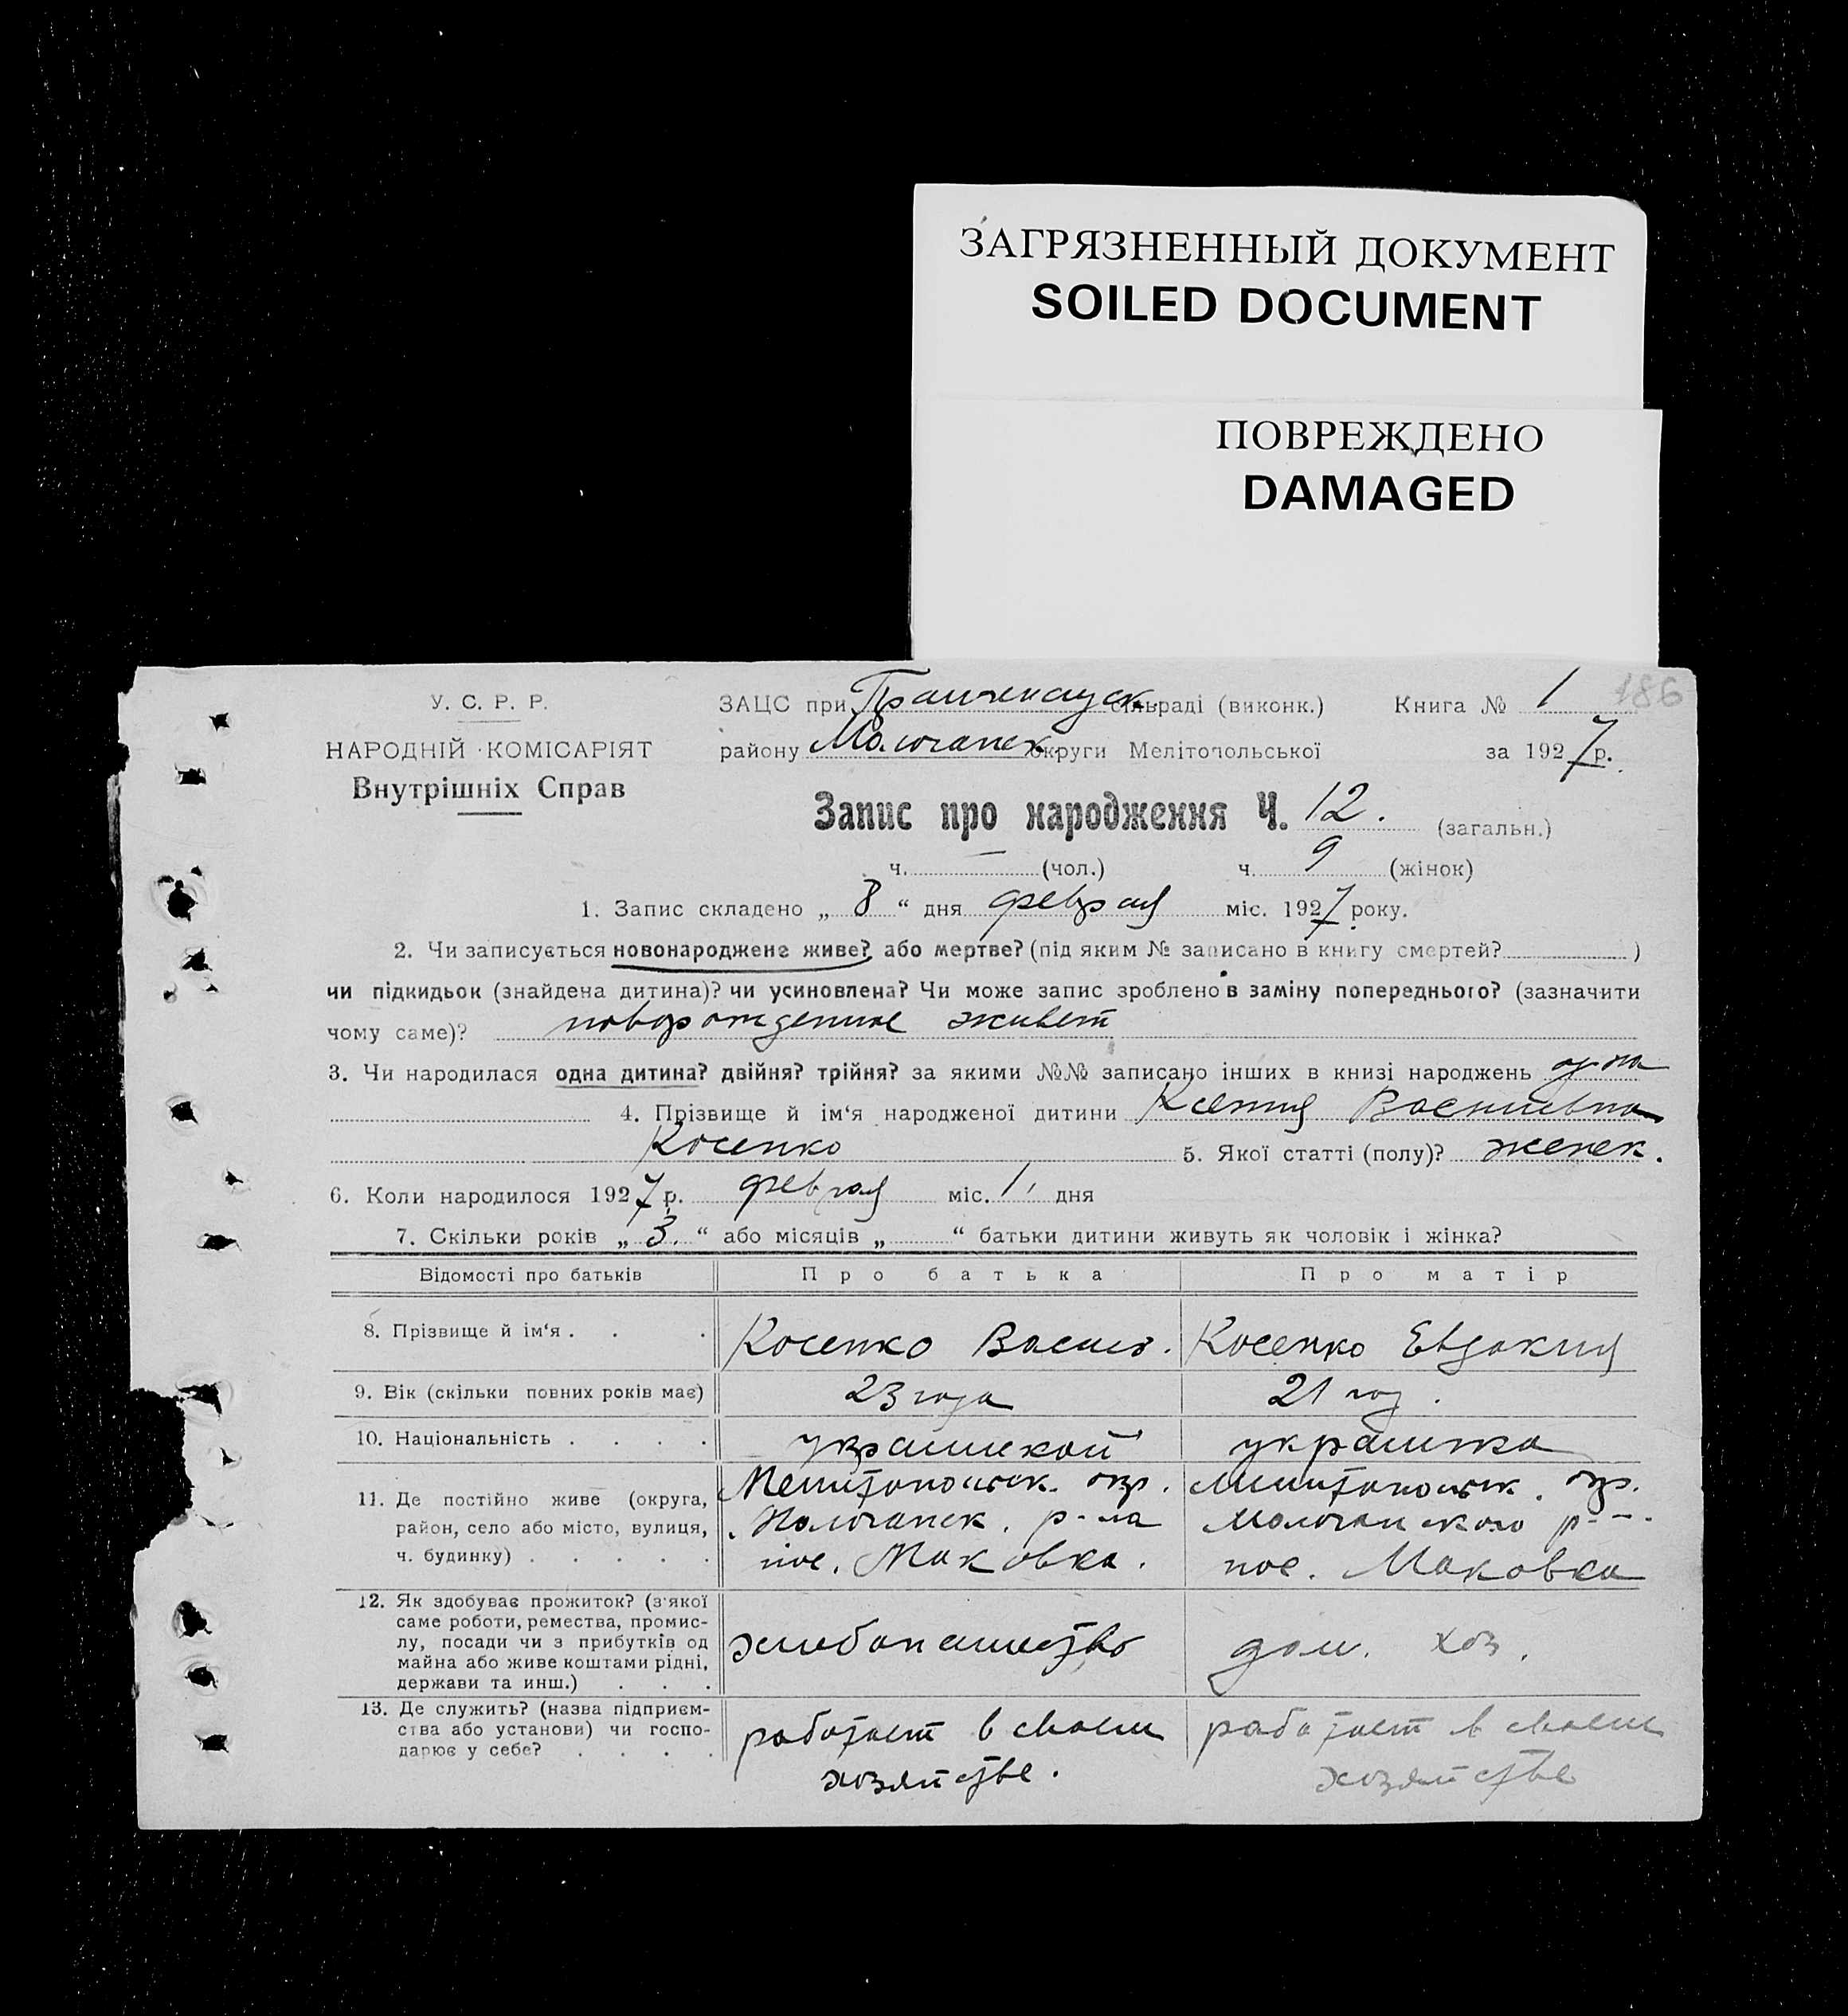 ЗАГРЯЗНЕННЫЙ ДОКУМЕНТ
SOILED DOCUMENT
ПОВРЕЖДЕНО
DAMAGED
186
У. С. Р. Р.
НАРОДНІЙ КОМІСАРІЯТ
Внутрішніх Справ
ЗАЦС при сільраді (виконк.) Книга № 1
району Молочанск. округи Мелітопольської за 1927 р.
Запис про народження Ч. 12. (загальн.)
ч. (чол.) ч. 9 (жінок)
1. Запис складено „ 8 “ дня февраля міс. 1927 року.
2. Чи записується новонароджене живе? або мертве? (під яким № записано в книгу смертей? )
чи підкидьок (знайдена дитина)? чи усиновлена? Чи може запис зроблено в заміну попереднього? (зазначити
чому саме)? новорожденное живет
3. Чи народилася одна дитина? двійня? трійня? за якими №№ записано інших в книзі народжень одна
4. Прізвище й ім‘я народженої дитини Ксения Васильевна
Косенко 5. Якої статті (полу)? женск.
6. Коли народилося 1927 р. февраля міс. 1, дня
7. Скільки років „ 3. “ або місяців „ “ батьки дитини живуть як чоловік і жінка?
Відомості про батьків Про батька Про матір
8. Прізвище й ім‘я . . . Косенко Васил. Косенко Евдокия
9. Вік (скільки повних років має) 23 года 21 год.
10. Національність . . . . украинской украинка
11. Де постійно живе (округа, Мелитопольск. окр. Мелитопольск. окр.
район, село або місто, вулиця, Молочанск. р-на Молочанского р-
ч. будинку) . . . . . пос. Маковка. пос. Маковка
12. Як здобуває прожиток? (з якої
саме роботи, ремества, промис-
лу, посади чи з прибутків од хлебопашество дом. хоз.
майна або живе коштами рідні,
держави та инш.) . . .
13. Де служить? (назва підприєм-
ства або установи) чи госпо- работает в своем работает в своем
дарює у себе? . . . . хозяйстве. хозяйстве